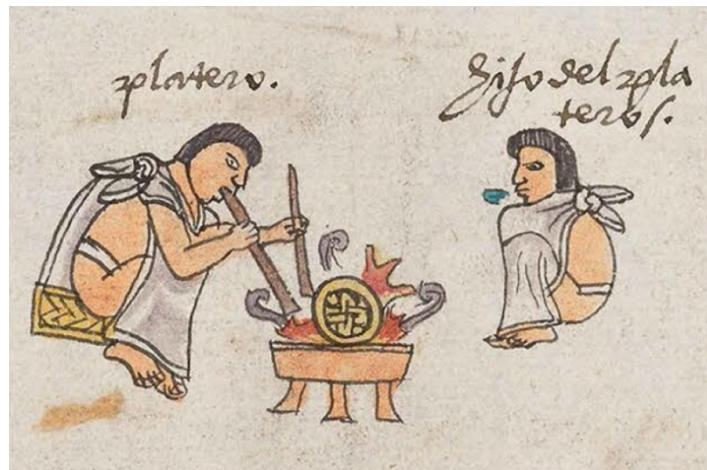 platero.
hijo del pla
tero/.